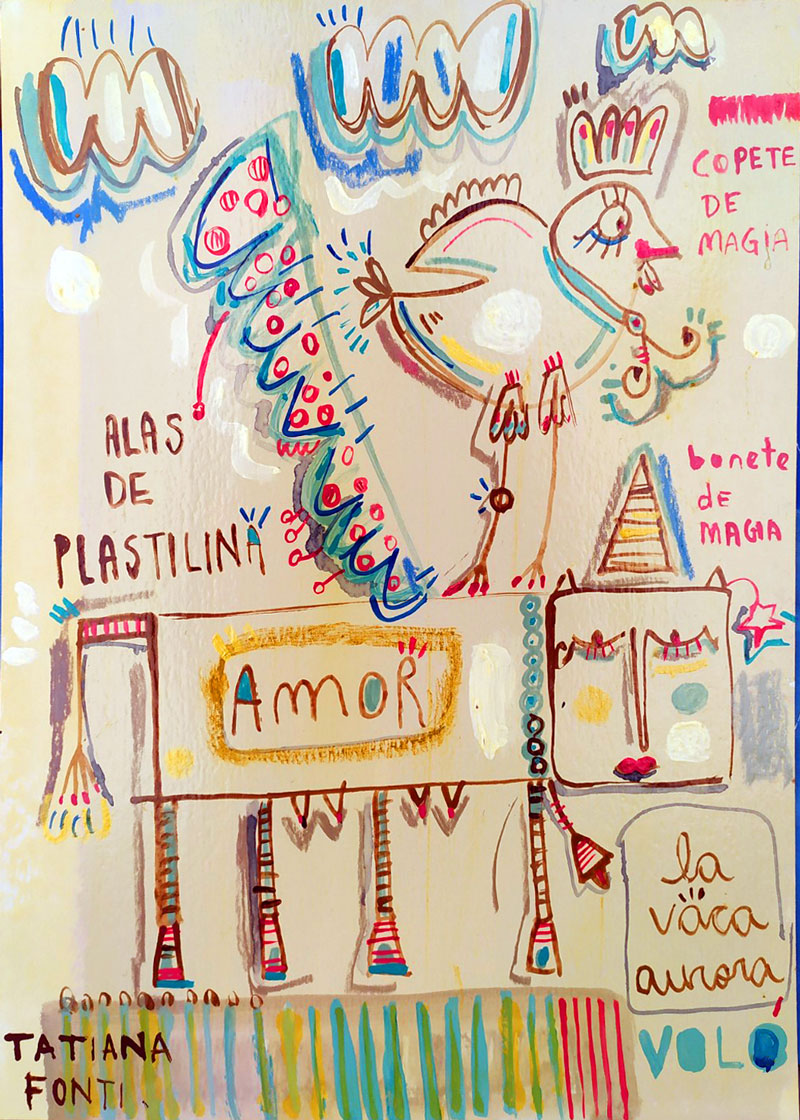 COPETE
DE
MAGIA
ALAS
DE
PLASTILINA
bonete
de
MAGIA
AMOR
la
vaca
aurora
VOLÓ
TATIANA
FONTI.